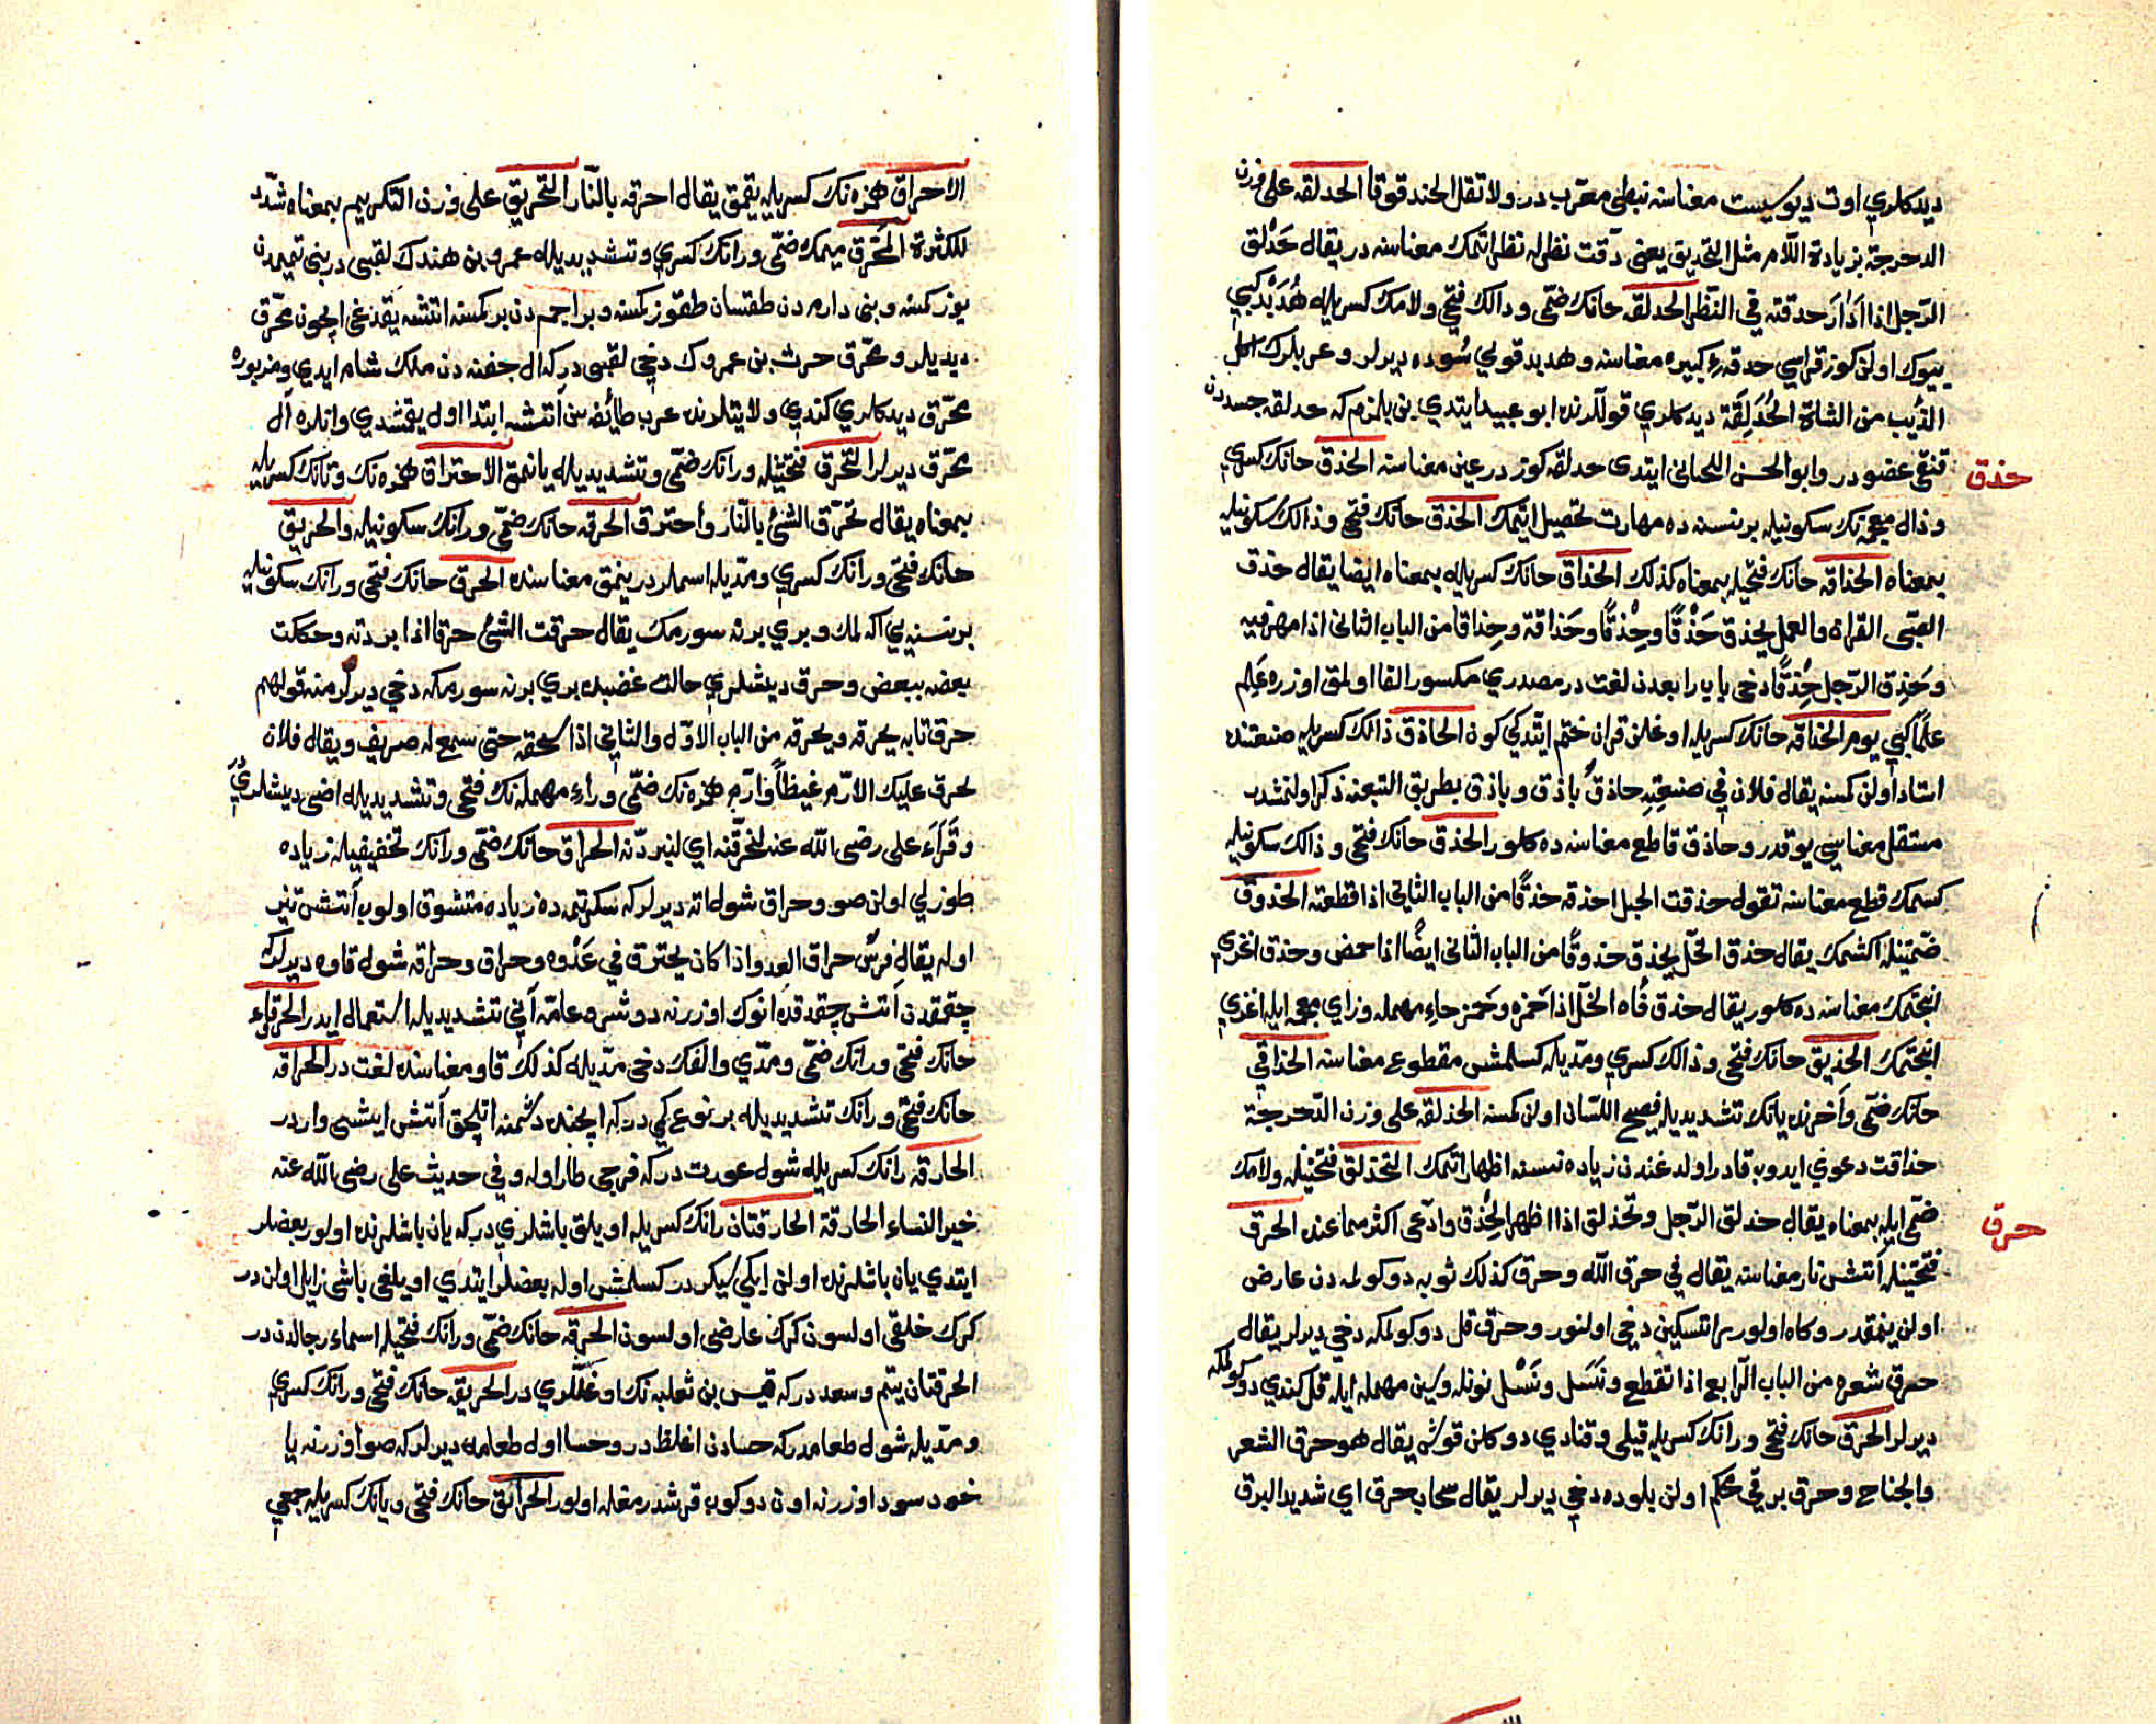 ديدكلري اوت ديوكيست معناسنه نبطى معرّب در ولا تقل الحندقوقا الحدلقه على وزن
الدحرجة بزيادة اللّام مثل التحديق يعنى دقّت نظرله نظر اتمك معناسنه در يقال حَدْلق
الرّجل اذا اَدَارَ حدقته في النّظر الحدلقه حانك ضمّى ودالك فتحى ولامك كسريله هُدَبْد كبي
بيوك اولن كوز قراسي حدقۀ كبيره معناسنه وهدبد قولي شوده ديرلر وعربلرك اكل
الذّيب من الشاة الحُدَلِقَة ديدكلري قوللرنده ابو عبيد ايتدي بن بلمزم كه حدلقه جسددن
قنغى عضودر وابو الحسن اللحيانى ايتدى حدلقه كوزدر عين معناسنه الحذق حانك كسري
حذق
وذال معجمه نك سكونيله برنسنه ده مهارت تحصيل اتمك الحذق حانك فتحى وذالك سكونيله
بمعناه الحذاقه حانك فتحيله بمعناه كذلك الحذاق حانك كسريله بمعناه ايضا يقال حذق
الصّبى القران والعمل يحذق حَذْقًا وحِذْقًا وحَذاقة وحِذاقا من الباب الثانى اذا مهر فيه
وحَذِق الرّجل حِذْقًا دخى باب رابعدن لغت در مصدري مكسور الفا اولمق اوزره عَلِم
علماً كبي يوم الحذاقه حانك كسريله اوغلن قران ختم ايتدكي كون الحاذق ذالك كسريله صنعتنده
استاد اولن كمسنه يقال فلان في صنعته حاذق باذق وباذق بطريق التبعنه ذكر اولنمشدر
مستقل معناسي يوقدر وحاذق قاطع معناسنه ده كلور الحذق حانك فتحى وذالك سكونيله
كسمك قطع معناسنه تقول حذقت الحبل احذقه حذقًا من الباب الثاني اذا قطعته الحذوق
ضمّتينله اكشمك يقال حذق الخلّ يحذق حذوقًا من الباب الثانى ايضًا اذا حمض وحذق اغزي
انجتمك معناسنه ده كلور يقال حذق فاه الخلّ اذا حَمَزه وحَمَز حاء مهمله وزاي معجمه ايله اغزي
انجتمك الحذيق حانك فتحى وذالك كسري ومدّيله كسلمش مقطوع معناسنه الحذاقي
حانك ضمّى وآخرنده يانك تشديديله فصيح اللسان اولن كمسنه الحذلقه على وزن الدّحرجة
حذاقت دعوي ايدوب قادر اولدغندن زياده نسنه اظهار اتمك التحذلق فتحتينله ولامك
ضمّى ايله بمعناه يقال حذلق الرّجل وتحذلق اذا اظهر الحِذْق وادّعى اكثر مما عنده الحرق
حرق
فتحتينله آتش نار معناسنه يقال في حرق الله وحرق كذلك ثوبه دوكولمه دن عارض
اولن ينمقدر وكاه اولور راتسكين دخي اولنور وحرق قل دوكولمكه دخي ديرلر يقال
حرق شعره من الباب الرّابع اذا تقطع ونَسَل ونَسْل نونله وسين مهمله ايله قل كندي دوكولمكه
ديرلر الحرق حانك فتحى ورانك كسريله قيلى وقنادي دوكلن قوش يقال هو حرق الشعر
والجناح وحرق برقي محكم اولن بلوده دخي ديرلر يقال سحاب حرق اي شديد البرق
الاحراق همزه نك كسريله يقمق يقال احرقه بالنّار التحريق على وزن التكريم بمعناه شدّد
للكثرة المحرّق ميمك ضمّى ورانك كسري وتشديديله عمرو بن هندك لقبى در بنى تميمدن
يوز كمسنه وبنى دارمدن طقسان طقوز كمسنه وبراجمدن بر كمسنه اتشه يقدغى ايچون محرّق
ديديلر ومحرّق حرث بن عمروك دخي لقبى دركه ال جفنه دن ملك شام ايدي ومزبوره
محرّق ديدكلري كندي ولايتلرنده عرب طائفه سن آتشه ابتدا اول يقمشدي وانلره آل
محرّق ديرلر التحرّق فتحتينله ورانك ضمّى وتشديديله يانمق الاحتراق همزه نك وتانك كسريله
بمعناه يقال تحرّق الشئ بالنّار واحترق الحرقه حانك ضمّى ورانك سكونيله والحريق
حانك فتحى ورانك كسري ومدّيله اسملردر ينمق معناسنده الحرق حانك فتحى ورانك سكونيله
برنسنه يي اكه لمك وبري برنه سورمك يقال حرقت الشئ حرقا اذا بردته وحككت
بعضه ببعض وحرق ديشلري حالت غضبده بري برنه سورمكه دخي ديرلر منه قولهم
حرق نابه يحرقه ويحرقه من الباب الاوّل والثاني اذا سحقه حتى سمع له صريف ويقال فلان
يحرق عليك الارّم غيظاً وارّم همزه نك ضمّى وراء مهمله نك فتحى وتشديديله اضى ديشلري در
وقَرَاَء على رضى الله عنه لنحرّقنه اي لنبردّنه الحراق حانك ضمّى ورانك تخفيفيله زياده
طوزلي اولن صو وحراق شول اته ديرلر كه سكرتمده زياده متشوق اولوب آتش تيز
اوله يقال فرسٌ حراق العدو اذا كان يحترق في عَدْوه وحراق وحراقه شول قاوه ديرلر كه
چقمقدن آتش چقردقده انوك اوزرنه دوشر عامّه آني تشديديله استعمال ايدر الحرقاء
حانك فتحى ورانك ضمّى ومدّي والفك دخى مدّيله كذلك قاو معناسنده لغت در الحراقه
حانك فتحى ورانك تشديديله بر نوع كمي دركه ايچنده دشمنه اتلجق آتش ايشى واردر
الحارقه رانك كسريله شول عورت دركه فرجى طار اوله وفي حديث على رضى الله عنه
خير النساء الحارقة الحارقتان رانك كسريله اويلق باشلري دركه يان باشلرنده اولور بعضلر
ايتدي يان باشلرنده اولن ايكي سكردر كسلمش اوله بعضلر ايتدي اويلغى باشى زايل اولن در
كرك خلقى اولسون كرك عارضى اولسون الحرقه حانك ضمّى ورانك فتحيله اسماء رجالدن در
الحرقتان يتم وسعد دركه قيس بن ثعلبه نك اوغللري در الحريقه حانك فتحى ورانك كسري
ومدّيله شول طعامدركه حسادن اغلظدر وحسا اول طعامه ديرلر كه صو اوزرنه يا
خود سود اوزرنه اون دوكوب قرشدرمغله اولور الحرائق حانك فتحى ويانك كسريله جمعي